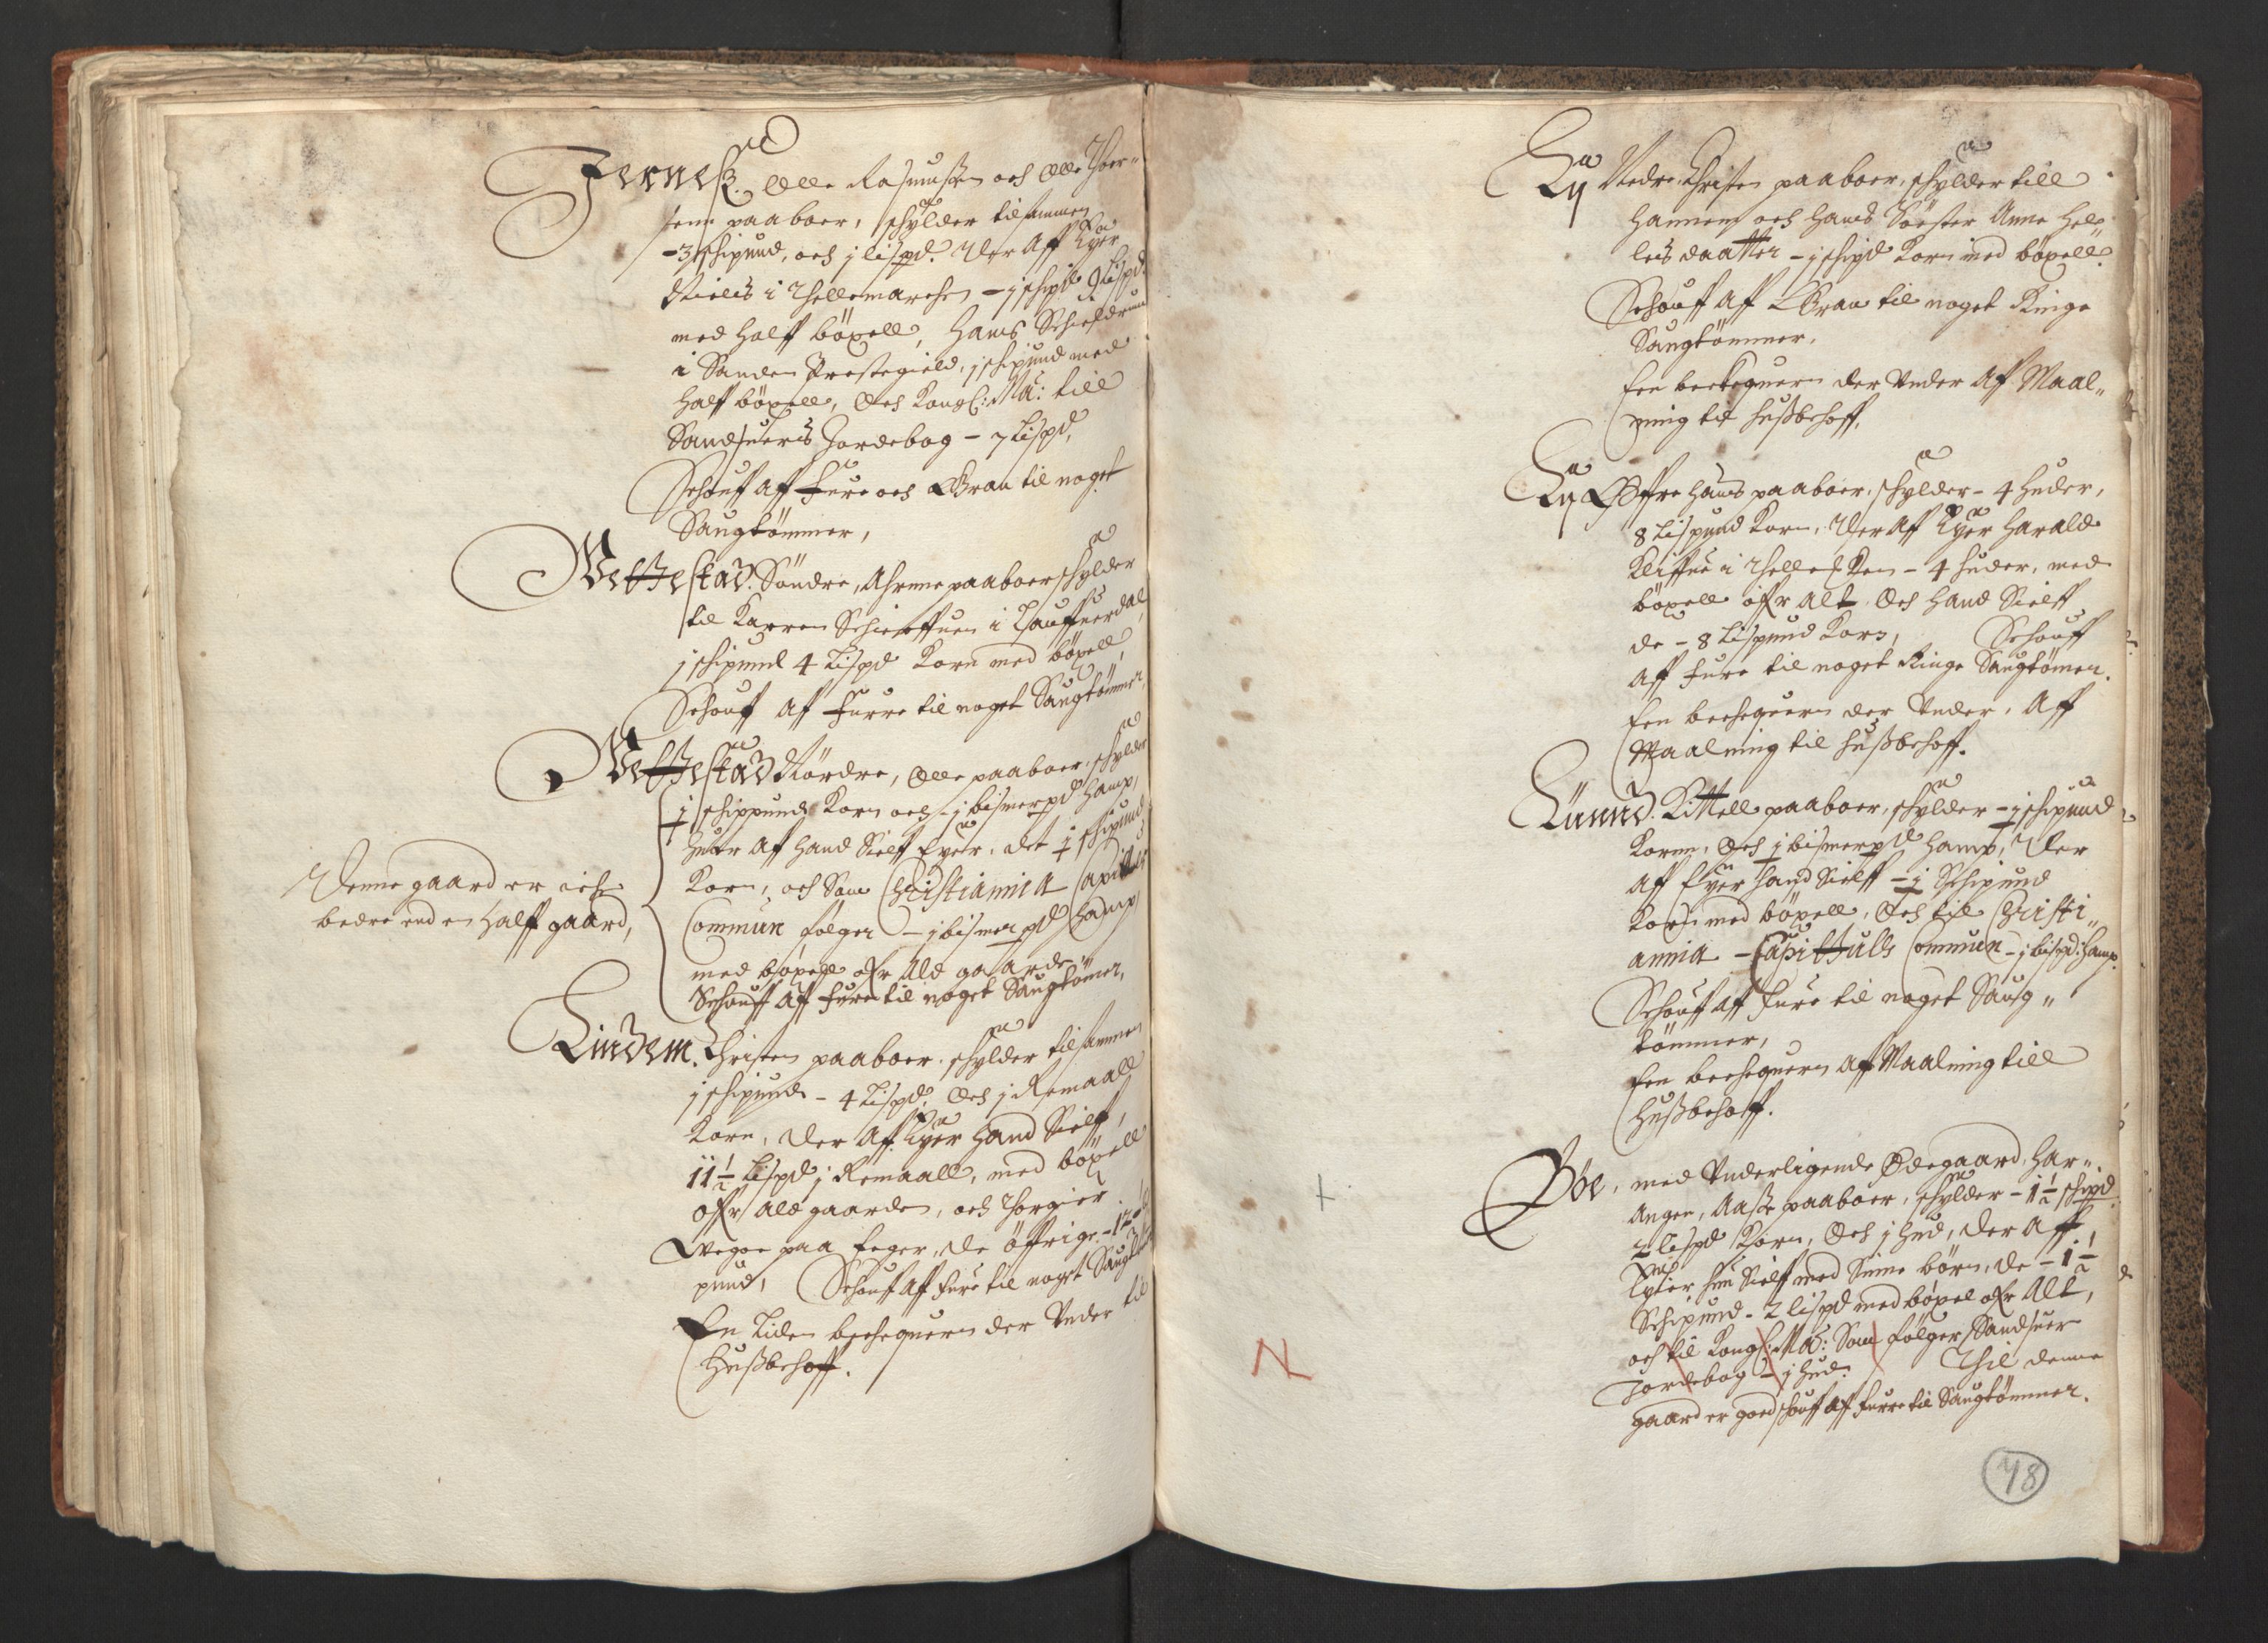 Jernes. Olle Rasmussen och Olle Thor-
sen paaboer, schylder tilsammen
- 3 schipund, och j lispd. Der aff Eyer
Nielß i Thellemarchen - j schipd 9 lispd
med halff böxell, Hans Schieldrum
i Sanden Prestegield, j schipund med
halff böxell, Och Kongl: Ma: till
Sandsuers Jordebog - 7 Lispd,
Schouff aff Fure och Gran til noget
Saugtömmer,
Vettestad Söndre, Ahrne paaboer schylder
til Karren i Lauffuerdal
j schipund 4 Lispd Korn med böxell,
Schouff aff Furre til noget Saugtömmer,
Vettestad Nördre, Olle paaboer, schylder
j schippund Korn och - j bismerpd Hamp,
Huor aff hand Sielff Eyer, det j schipund
Korn, och Som Christiannia Capitels
Commun følger - j bismerpd Hamp
med böxell ofr Ald gaarden,
Schouff aff Fure til noget Saugtömer,
Denne gaard er ich
bedre end en Halff gaard,
Lindem. Christen paaboer, schylder tilsammen
j schipund - 4 Lispd, Och j Remaall
Korn, der aff Eyer Hand Sielff,
11½ Lispd j Remaall, med böxell
ofr ald gaarden, och Thorgier
paa Eger, de öffrige - 12
pund, Schouff aff Fure til noget Saugt
En Liden bechequern der Under til
Hußbehoff.
Ly Nedre, Christen paaboer, schylder till
Hannem och hans Söster Anne Hel-
leis daatter - j schipd Korn med böxell.
Schouff aff Gran til noget Ringe
Saugtömmer,
Een bechequern der Under aff Maal-
ning til Hußbehoff,
Ly Öffre Hans paaboer, schylder - 4 huder,
8 Lispund Korn, Der aff Eyer Harald
i Thellem - 4 huder, med
böxell ofr alt, Och Hand Sielff
de - 8 Lispund Korn, Schouff
aff Fure til noget Ringe Saugtömer.
Een bechequern der Under, Aff
Maalning til Hußbehoff.
Lunnd. Kittell paaboer, schylder - j schipund
Kornn, Och j bismerpd Hamp, Der
aff Eyer Hand Sielff - j Schipund
Korn med böxell, Och til Christi-
annia - Capittulls Commun - j bispd: Hamp.
Schouff aff Fure til noget Saug-
tömmer,
Een bechequern aff Maalning till
Hußbehoff.
Böe, med Underligende Ødegaard, Har-
Angen, Aase paaboer, schylder - 1½ schipd
2 lispd Korn, Och j hud, der aff
Eyer hun Sielff med Sinne börn, de - 1½
Schipund - 2 lispd med böxel ofr Alt,
och til Kongl: Ma: Som følger Sandsuer
Jordebog - j hud. Thil denne
gaard er goed schouff aff Furre til Saugtömmer.
N
48